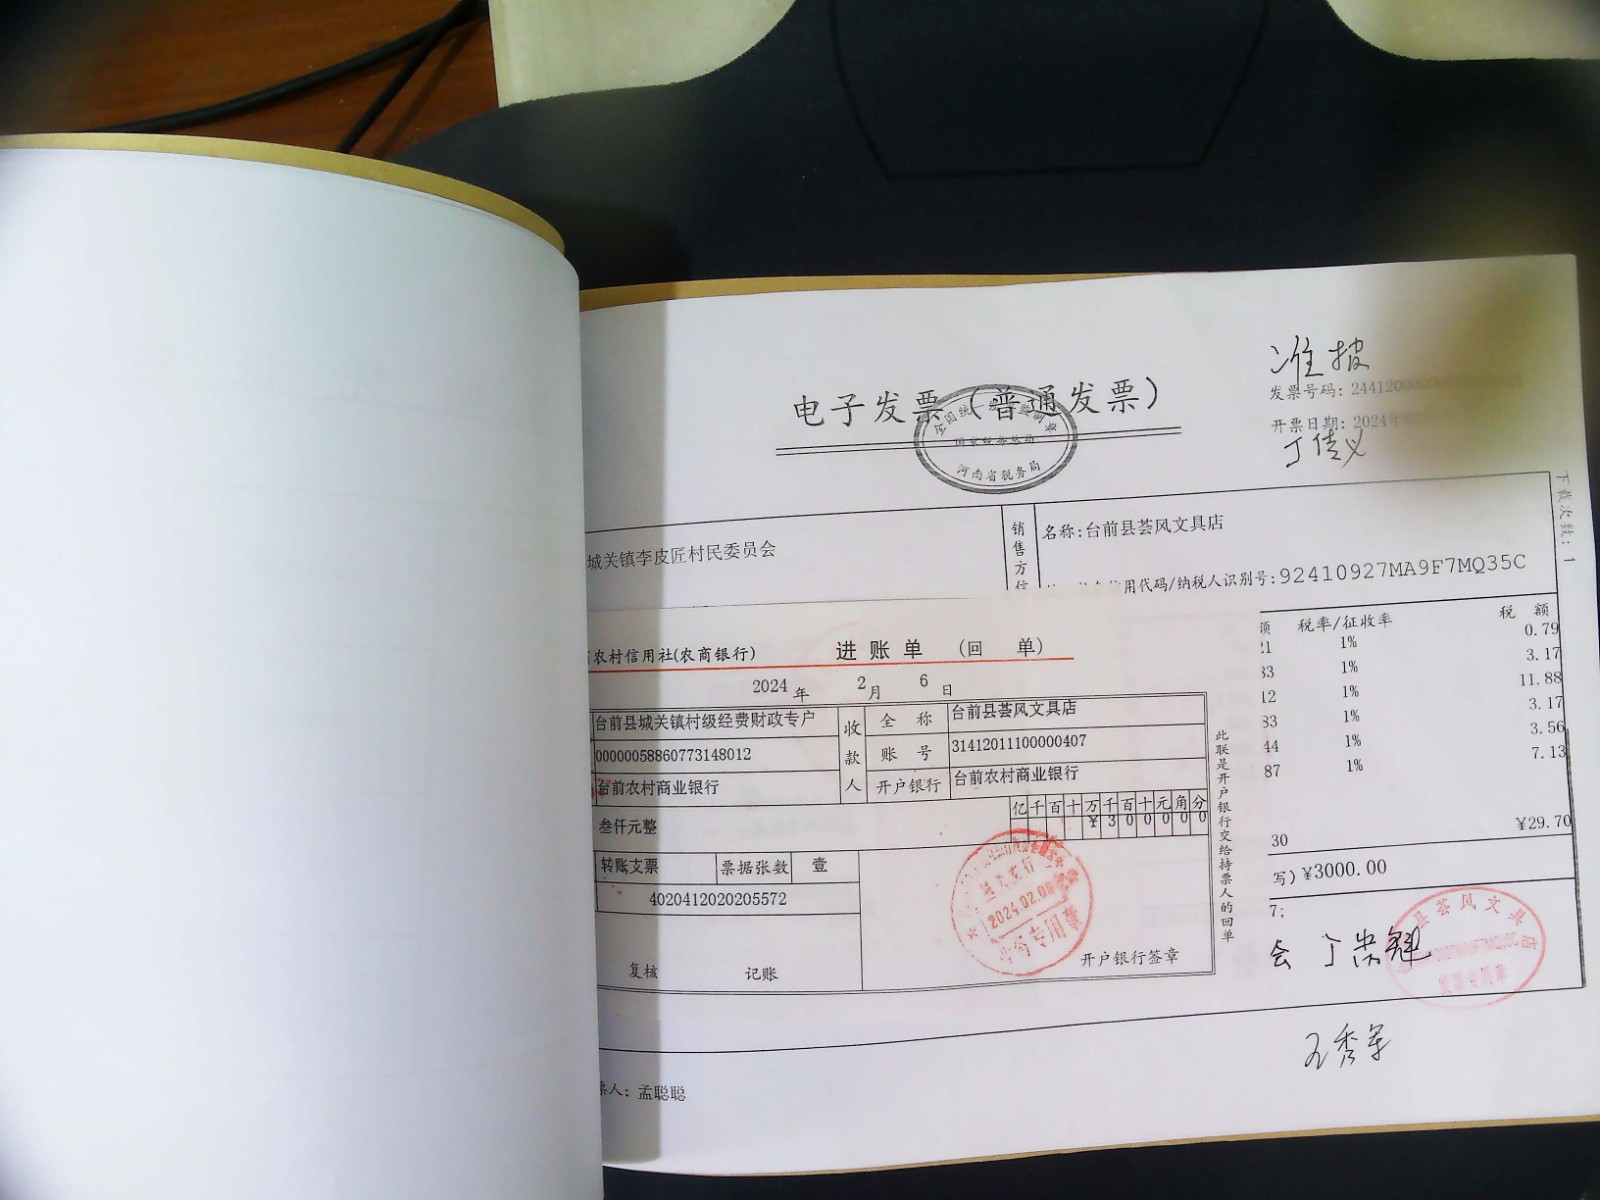 准报
电子发票（普通发票）
发票号码：2441200
开票日期：2024年
丁佳义
全国统一发票监制章
国家税务总局
河南省税务局
下载次数：1
城关镇李皮匠村民委员会
销售方信
名称：台前县荟风文具店
用代码/纳税人识别号：92410927MA9F7MQ35C
额 税率/征收率 税 额
21 1% 0.79
83 1% 3.17
12 1% 11.88
83 1% 3.17
44 1% 3.56
87 1% 7.13
30 ¥29.70
写）¥3000.00
7;
农村信用社(农商银行) 进账单 （回 单）
2024 年 2 月 6 日
台前县城关镇村级经费财政专户 收款人 全 称 台前县荟风文具店
00000058860773148012 账 号 31412011100000407
台前农村商业银行 开户银行 台前农村商业银行
亿千百十万千百十元角分
叁仟元整 ¥300000
转账支票 票据张数 壹
4020412020205572
复核 记账
开户银行签章
此联是开户银行交给持票人的回单
城关支行
2024.02.06
业务专用章
县荟风文具店
发票专用章
会 丁崇魁
王秀军
票人：孟聪聪